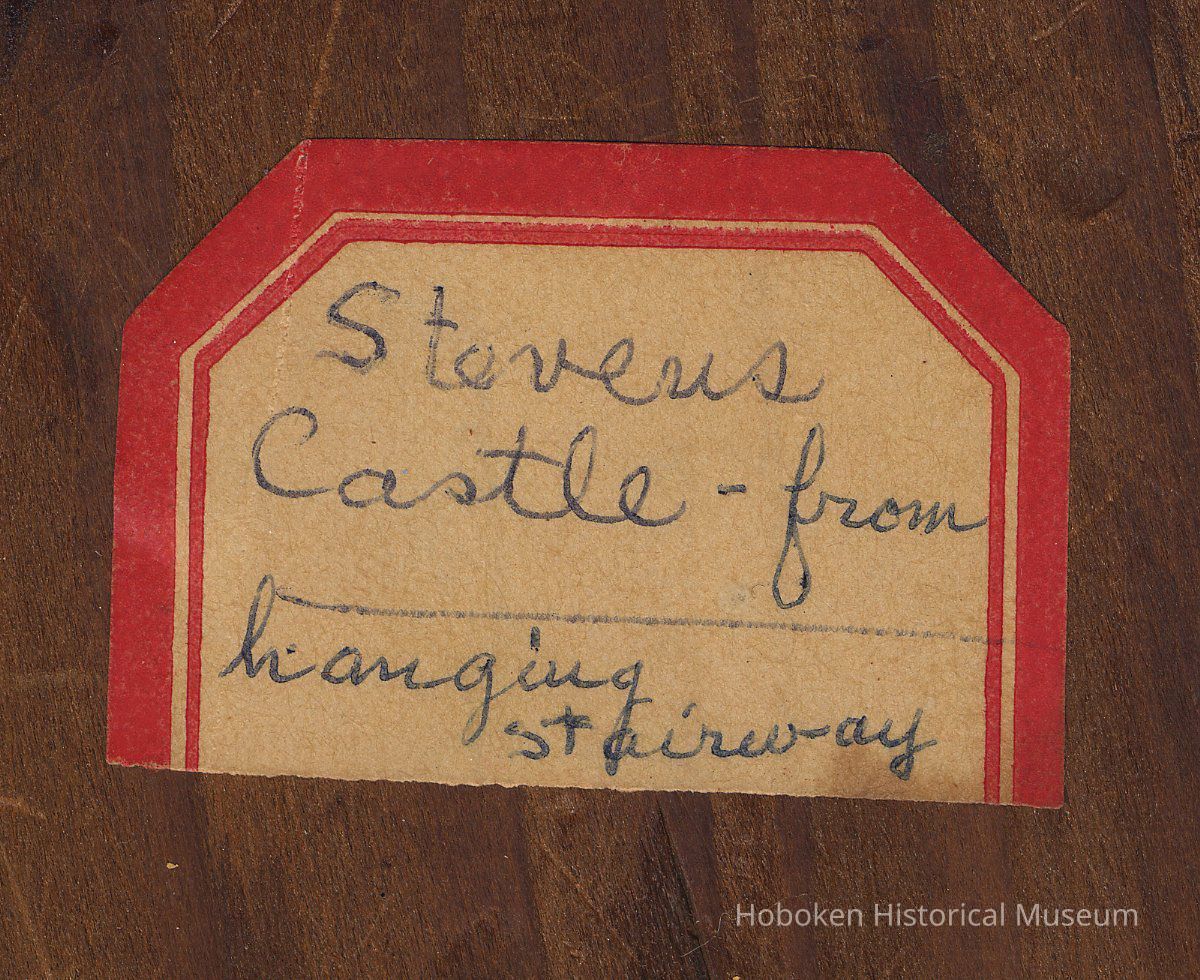 Stevens
Castle - from
hanging
stairway
Hoboken Historical Museum